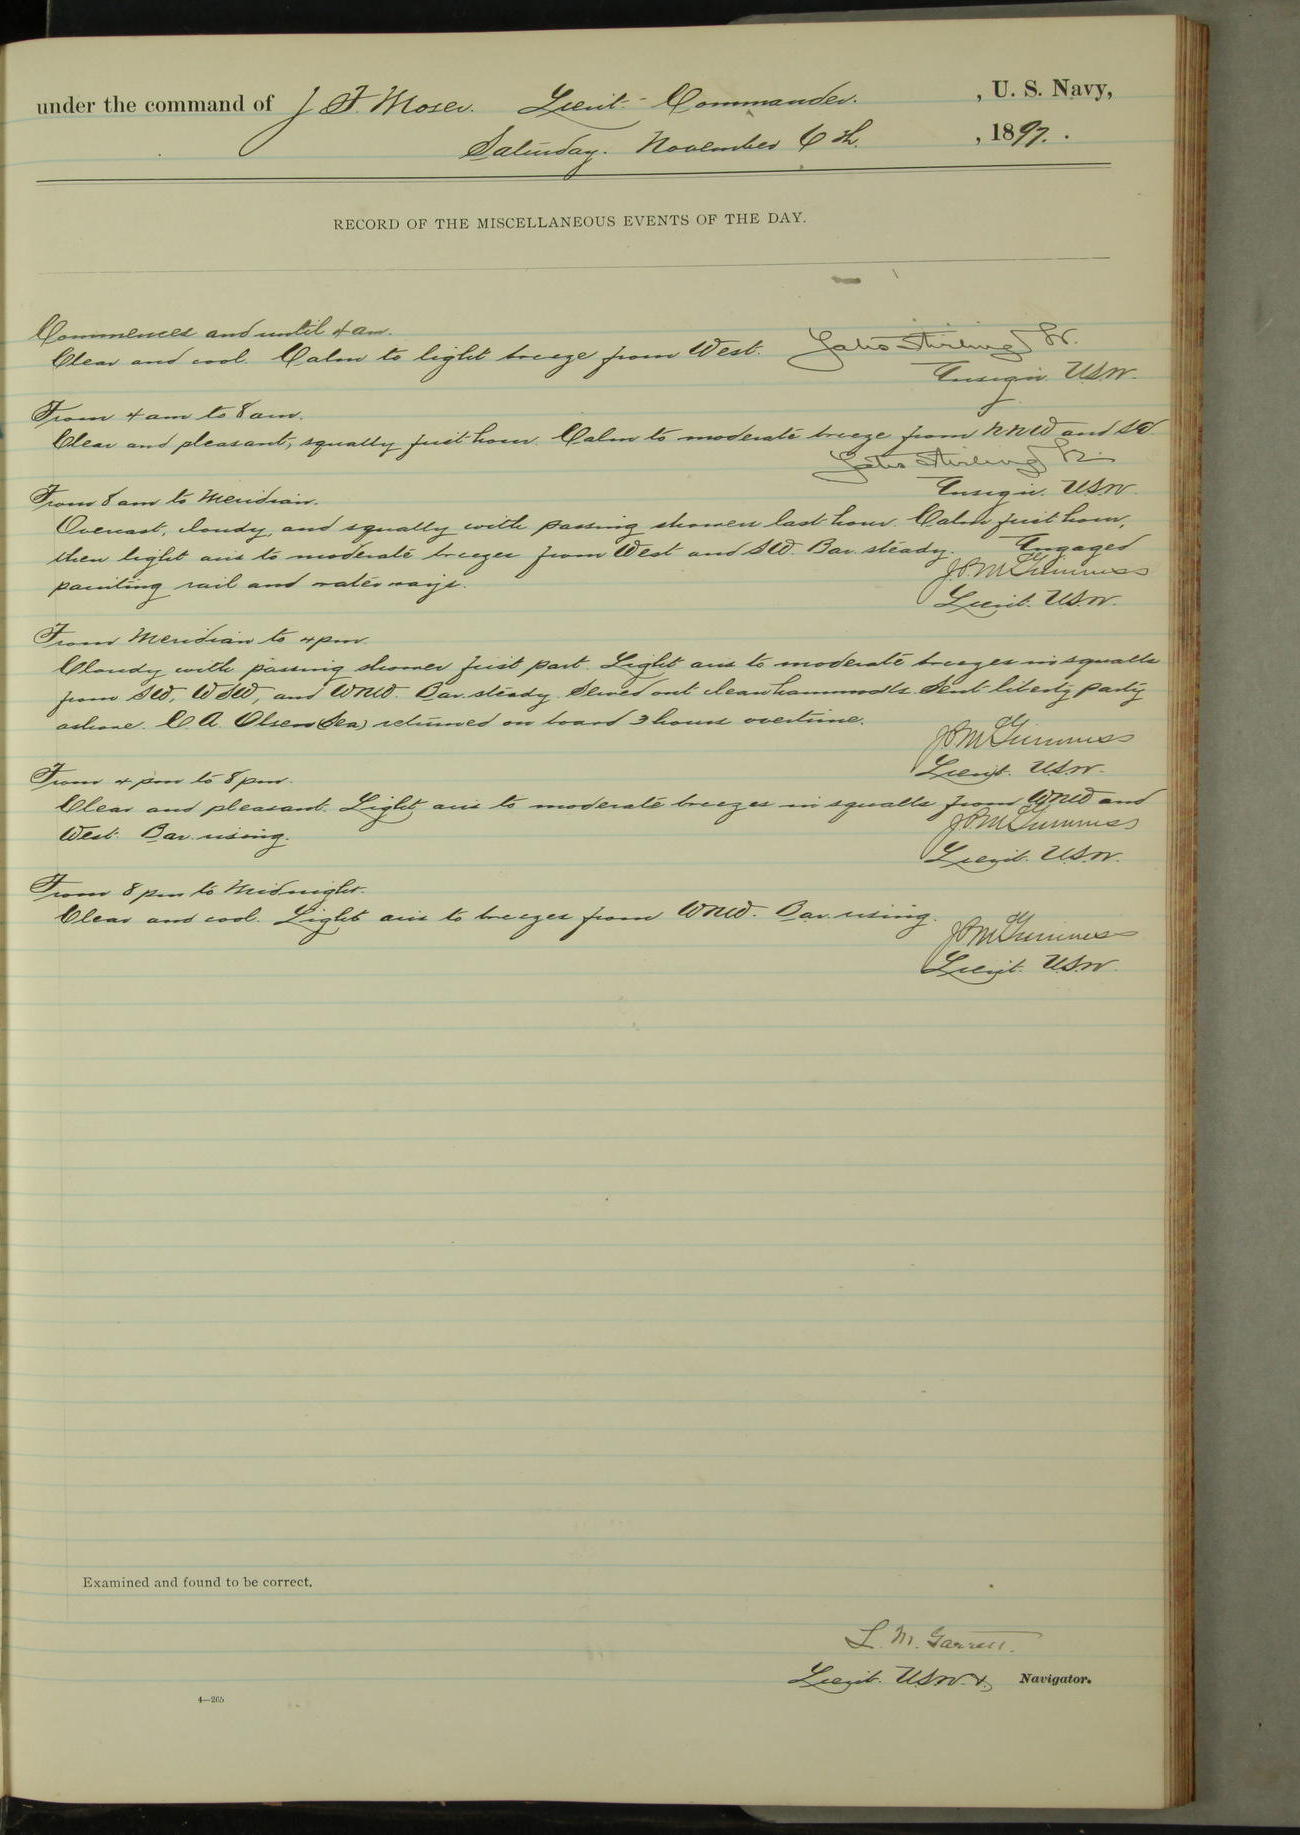 under the command of J. F. Moser. Lieut.-Commander. , U. S. Navy,
Saturday. November 6th. , 1897.
RECORD OF THE MISCELLANEOUS EVENTS OF THE DAY.
Commences and until 4 am.
Clear and cool. Calm to light breeze from West. Yates Stirling Jr.
Ensign. USN.
From 4 am to 8 am.
Clear and pleasant, squally first hour. Calm to moderate breeze from NNW and SW
Yates Stirling Jr.
Ensign. USN.
From 8 am to Meridian.
Overcast, cloudy, and squally with passing showers last hour. Calm first hour,
then light airs to moderate breezes from West and SW. Bar. steady. Engaged
painting rail and waterways.
Lieut. USN.
From Meridian to 4 pm.
Cloudy with passing shower first part. Light airs to moderate breezes in squalls
from SW, WSW, and WNW. Bar. steady. Served out clean hammocks. Sent liberty party
ashore. C. A. Olsen (Sea) returned on board 3 hours overtime.
Lieut. USN.
From 4 pm to 8 pm.
Clear and pleasant. Light airs to moderate breezes in squalls from WNW and
West. Bar. rising.
Lieut. USN.
From 8 pm to Midnight.
Clear and cool. Light airs to breezes from WNW. Bar. rising.
Lieut. USN.
Examined and found to be correct.
L. M. Garrett.
Lieut. USN. &, Navigator.
4—265